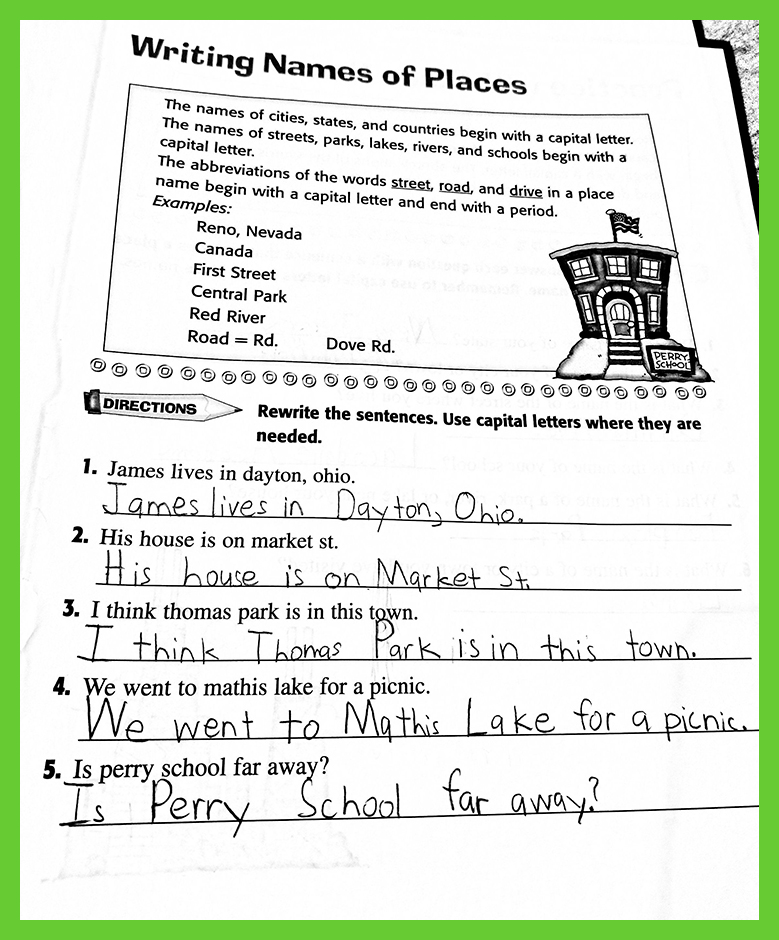 Writing Names of Places
The names of cities, states, and countries begin with a capital letter.
The names of streets, parks, lakes, rivers, and schools begin with a
capital letter.
The abbreviations of the words street, road, and drive in a place
name begin with a capital letter and end with a period.
Examples:
Reno, Nevada
Canada
First Street
Central Park
Red River
Road = Rd. Dove Rd.
PERRY
SCHOOL
DIRECTIONS
Rewrite the sentences. Use capital letters where they are
needed.
1. James lives in dayton, ohio.
James lives in Dayton, Ohio.
2. His house is on market st.
His house is on Market St.
3. I think thomas park is in this town.
I think Thomas Park is in this town.
4. We went to mathis lake for a picnic.
We went to Mathis Lake for a picnic.
5. Is perry school far away?
Is Perry School far away?